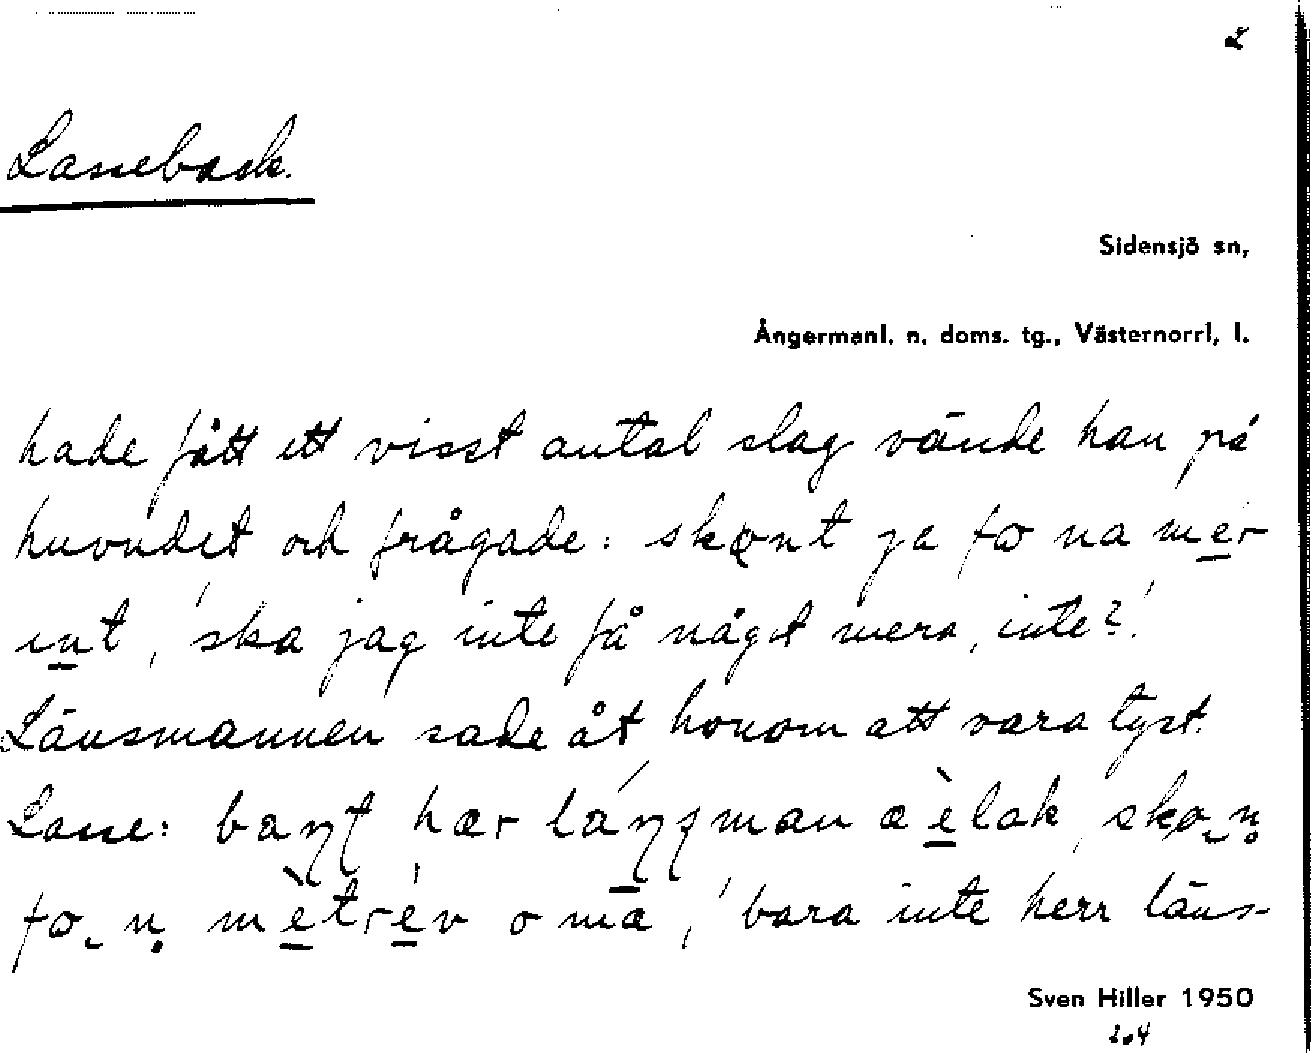 2
Lassebask.
Sidensjö sn,
Ångermanl. n. doms. tg., Västernorrl. l.
hade fått ett visst antal slag vände han på
huvudet och frågade: skɷnt ja fɷ na mer
int, 'ska jag inte få något mera, inte?'
Länsmannen sade åt honom att vara tyst.
Lasse: hær man æ èlak,
fɷ mètrév o mæ, 'bara inte herr läns-
Sven Hiller 1950
204